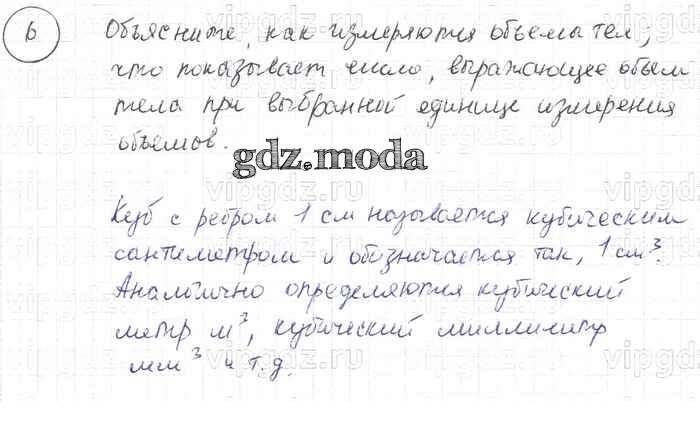 6 Объясните, как измеряются объемы тел,
что показывает число, выражающее объем
тела при выбранной единице измерения
объемов.
gdz.moda
Куб с ребром 1 см называется кубическим
сантиметром и обозначается так, 1 см³.
Аналогично определяются кубический
метр м³, кубический миллиметр
мм³ и т.д.
vipgdz.ru